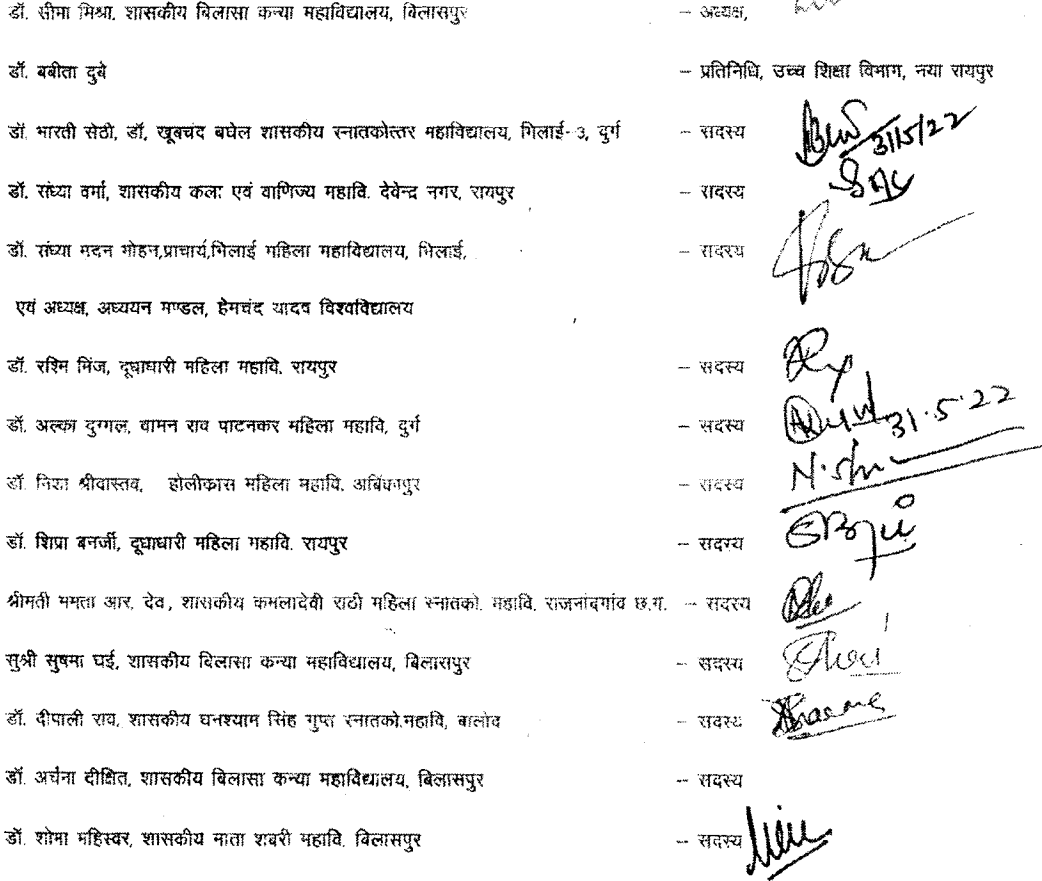 डॉ. सीमा मिश्रा, शासकीय बिलासा कन्या महाविद्यालय, बिलासपुर – अध्यक्ष,
डॉ. बबीता दुबे – प्रतिनिधि, उच्च शिक्षा विभाग, नया रायपुर
डॉ. भारती सेठी, डॉ, खूबचंद बघेल शासकीय स्नातकोत्तर महाविद्यालय, भिलाई-3, दुर्ग – सदस्य 31/5/22
डॉ. संध्या वर्मा, शासकीय कला एवं वाणिज्य महावि. देवेन्द्र नगर, रायपुर – सदस्य
डॉ. संध्या मदन मोहन,प्राचार्य,भिलाई महिला महाविद्यालय, भिलाई, – सदस्य
एवं अध्यक्ष, अध्ययन मण्डल, हेमचंद यादव विश्वविद्यालय
डॉ. रश्मि मिंज, दूधाधारी महिला महावि. रायपुर – सदस्य
डॉ. अल्का दुग्गल, वामन राव पाटनकर महिला महावि, दुर्ग – सदस्य 31.5.22
डॉ. निशा श्रीवास्तव, होलीक्रास महिला महावि. अंबिकापुर – सदस्य
डॉ. शिप्रा बनर्जी, दूधाधारी महिला महावि. रायपुर – सदस्य
श्रीमती ममता आर. देव, शासकीय कमलादेवी राठी महिला स्नातको. महावि. राजनांदगांव छ.ग. – सदस्य
सुश्री सुषमा घई, शासकीय बिलासा कन्या महाविद्यालय, बिलासपुर – सदस्य
डॉ. दीपाली राव, शासकीय घनश्याम सिंह गुप्ता स्नातको.महावि, बालोद – सदस्य
डॉ. अर्चना दीक्षित, शासकीय बिलासा कन्या महाविद्यालय, बिलासपुर – सदस्य
डॉ. शोभा महिस्वर, शासकीय माता शबरी महावि. बिलासपुर – सदस्य